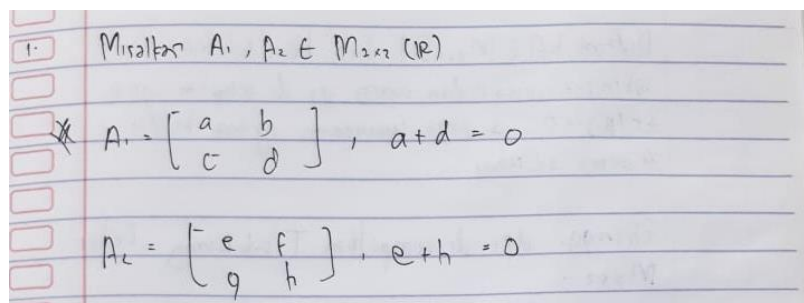 1. Misalkan A₁, A₂ ∈ M₂ₓ₂ (ℝ)
* A₁ = [a b
c d], a + d = 0
A₂ = [e f
g h], e + h = 0